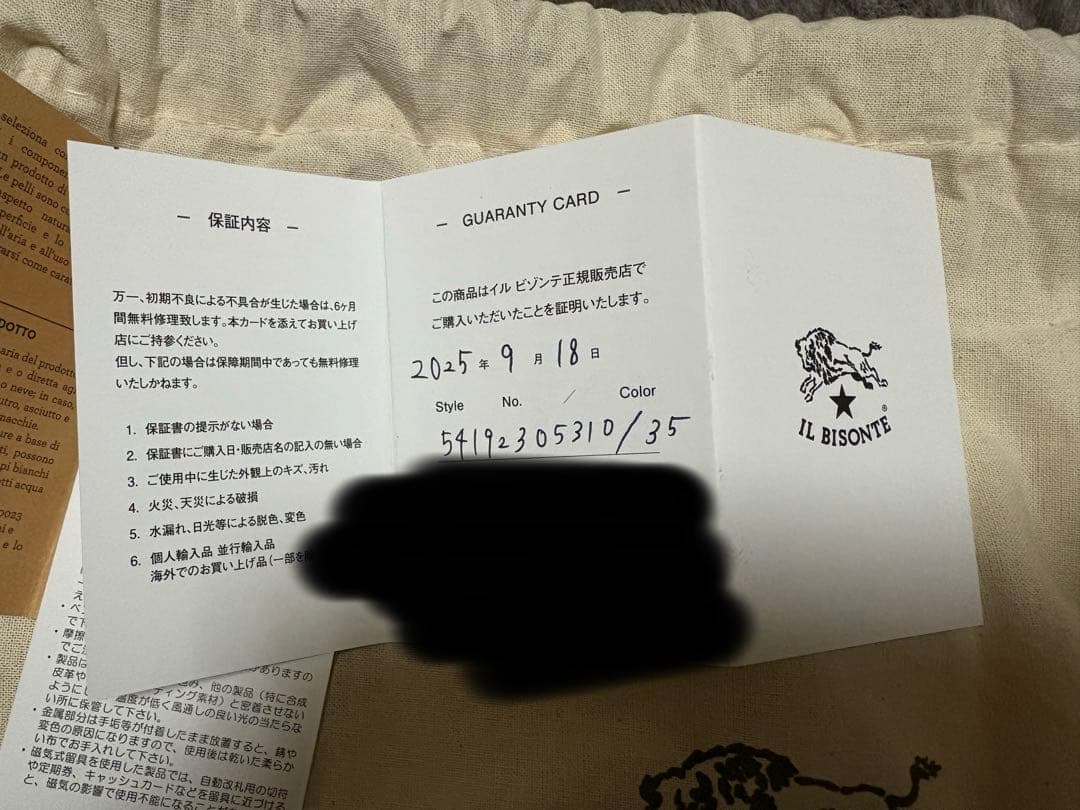 seleziona
i componen
prodotto di
Le pelli sono
aspetto natura
perficie e lo
all'aria e all'uso
arsi come
DOTTO
aria del prodotto
e o diretta
o neve; in caso,
asciutto e
macchie.
ure a base di
possono
pi bianchi
acqua
0023
e lo
― 保証内容 ―
万一、初期不良による不具合が生じた場合は、6ヶ月
間無料修理致します。本カードを添えてお買い上げ
店にご持参ください。
但し、下記の場合は保障期間中であっても無料修理
いたしかねます。
1. 保証書の提示がない場合
2. 保証書にご購入日・販売店名の記入の無い場合
3. ご使用中に生じた外観上のキズ、汚れ
4. 火災、天災による破損
5. 水漏れ、日光等による脱色、変色
6. 個人輸入品 並行輸入品
海外でのお買い上げ品(一部を
― GUARANTY CARD ―
この商品はイル ビゾンテ正規販売店で
ご購入いただいたことを証明いたします。
2025年 9月 18日
Style No. / Color
54192305310/35
IL BISONTE®
・摩擦
でご
がありますの
・製品は
込み、他の製品(特に合成
皮革や
ティング素材)と密着させない
ように
湿度が低く風通しの良い光の当たらな
い所に保管して下さい。
・金属部分は手垢等が付着したまま放置すると、錆や
変色の原因になりますので、使用後は乾いた柔らか
い布でお手入れして下さい。
・磁気式留具を使用した製品では、自動改札用の切符
や定期券、キャッシュカードなどを留具に近づける
と、磁気の影響で使用不能になること